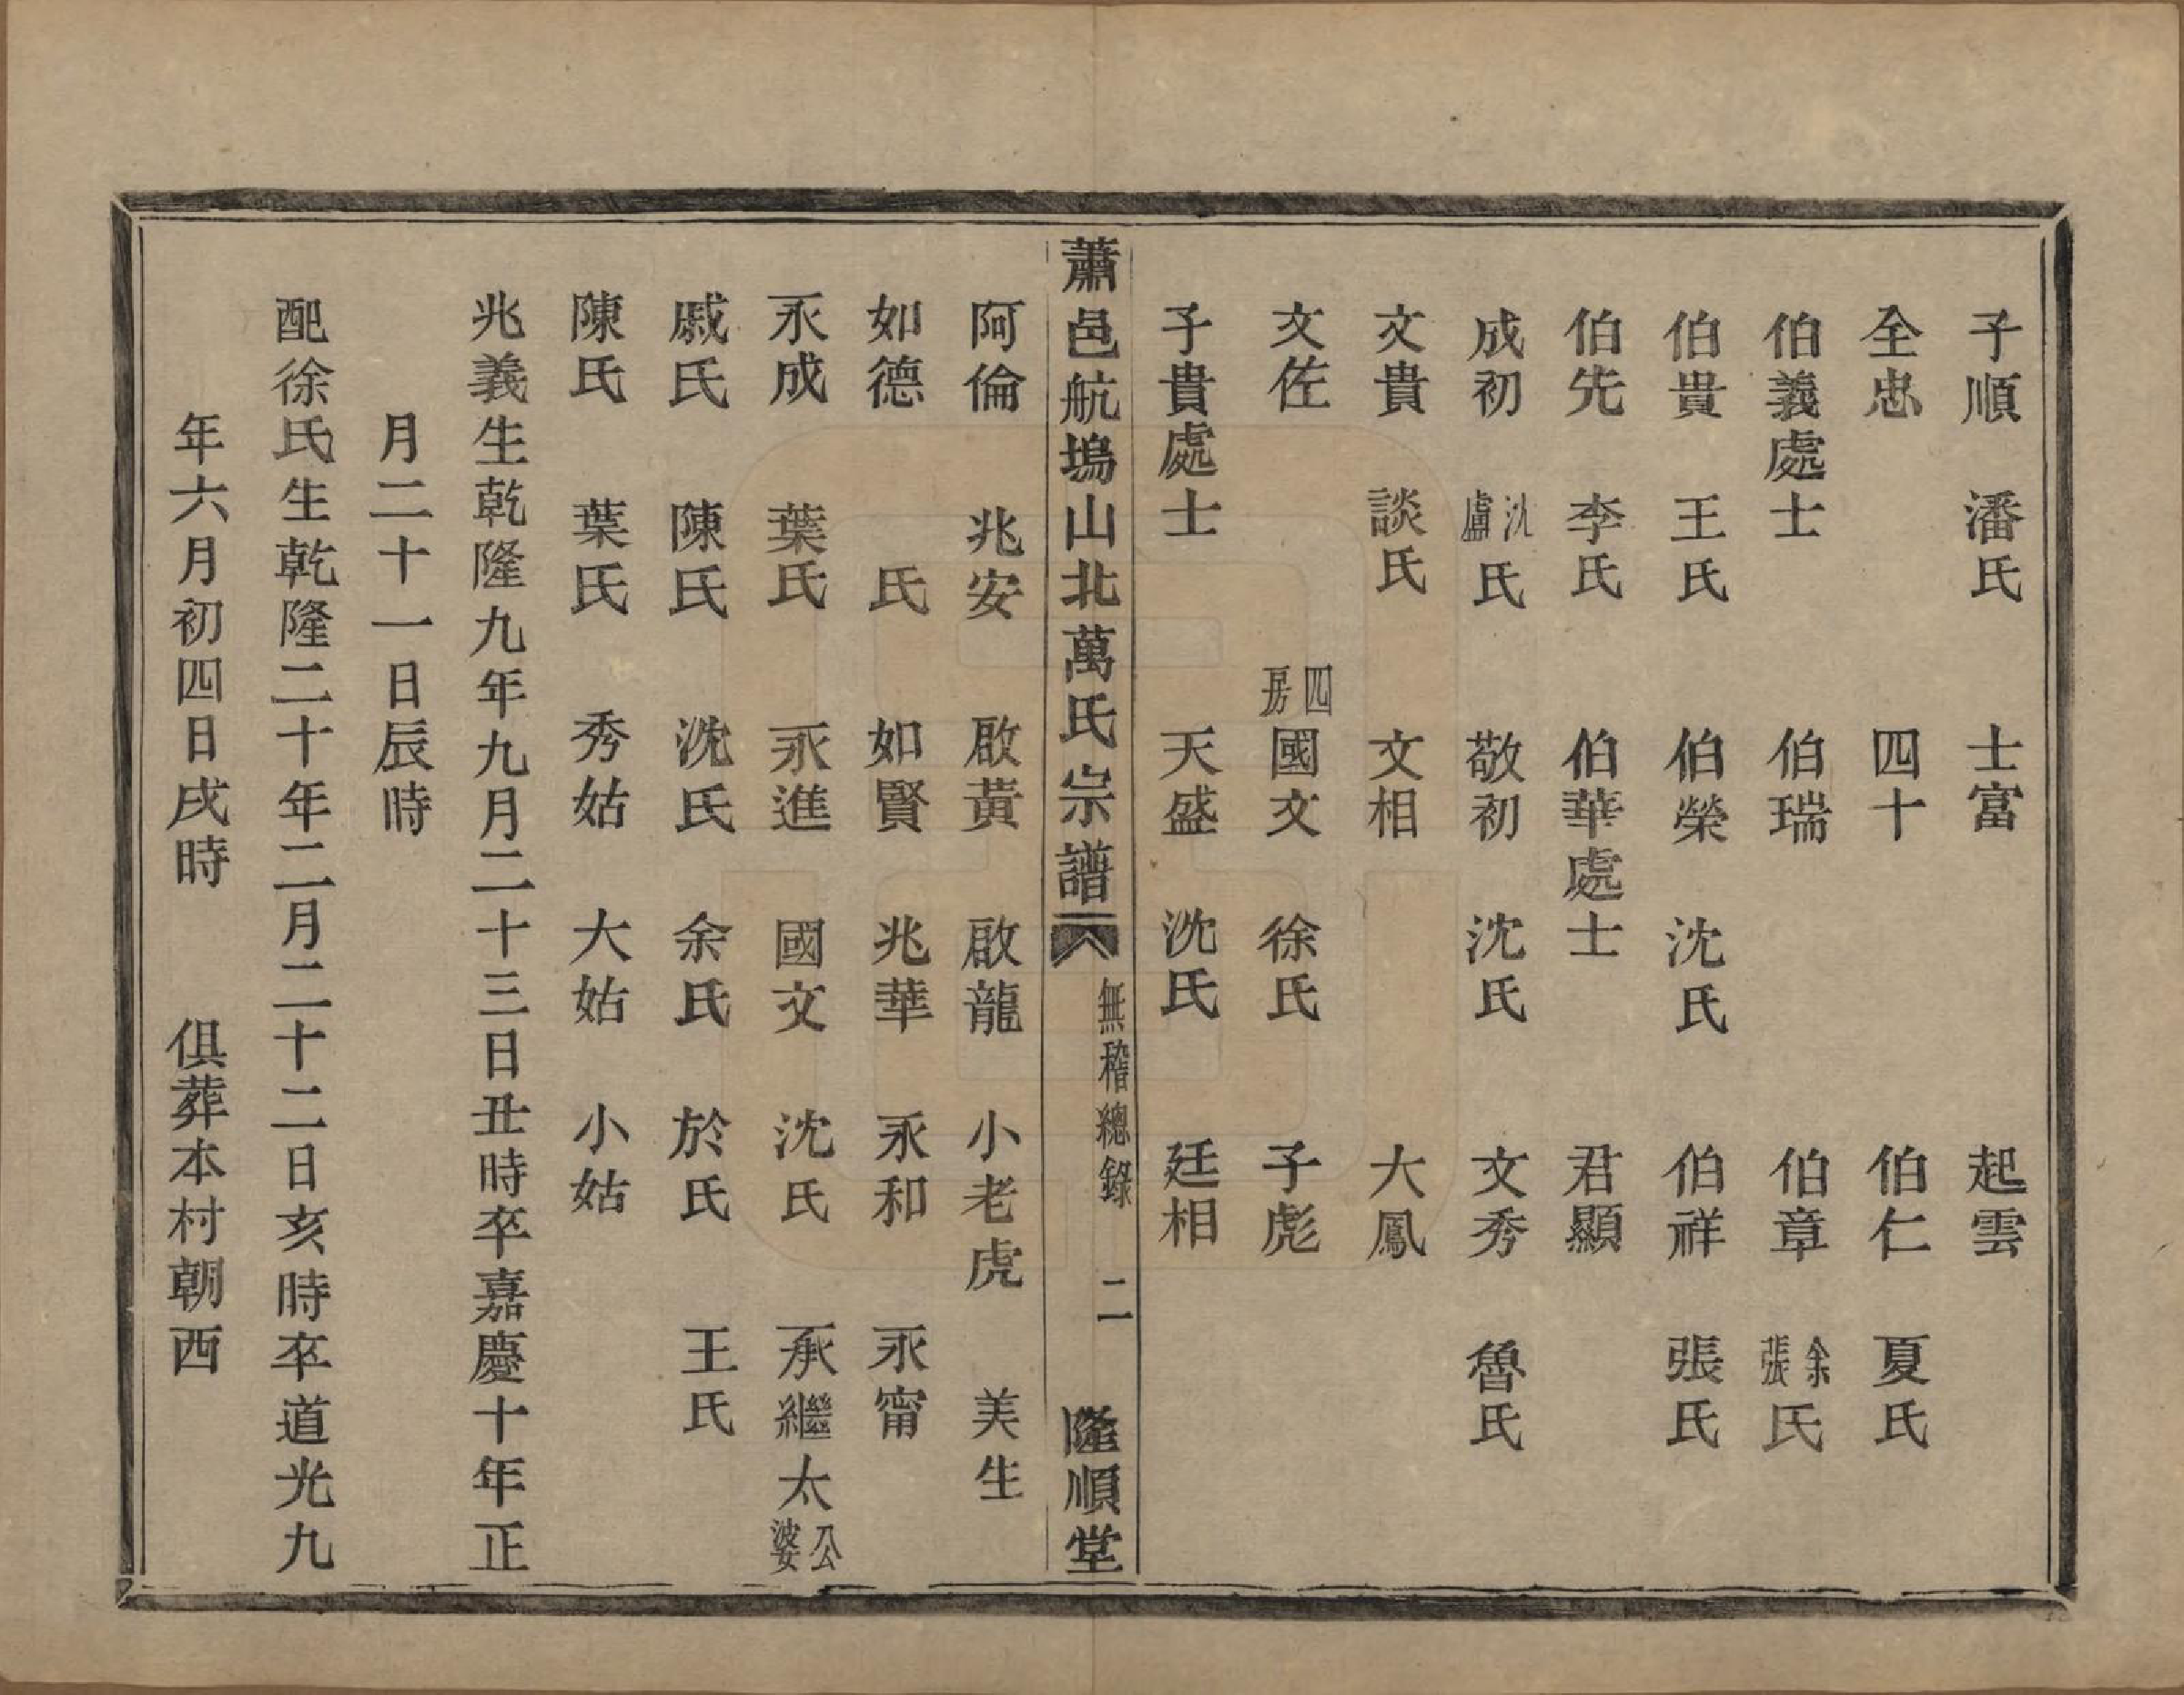 子順　潘氏　士富　起雲
全忠　四十　伯仁　夏氏
伯義處士　伯瑞　伯章　余張氏
伯貴　王氏　伯榮　沈氏　伯祥　張氏
伯先　李氏　伯華處士　君顯
成初　沈盧氏　敬初　沈氏　文秀　魯氏
文貴　談氏　文相　大鳳
文佐　四房國文　徐氏　子彪
子貴處士　天盛　沈氏　廷相
蕭邑航塢山北萬氏宗譜　無稽總錄　二　隆順堂
阿倫　兆安　啟黃　啟龍　小老虎　美生
如德　氏　如賢　兆華　永和　永甯
永成　葉氏　永進　國文　沈氏　承繼太公婆
戚氏　陳氏　沈氏　余氏　於氏　王氏
陳氏　葉氏　秀姑　大姑　小姑
兆義生乾隆九年九月二十三日丑時卒嘉慶十年正
月二十一日辰時
配徐氏生乾隆二十年二月二十二日亥時卒道光九
年六月初四日戌時　俱葬本村朝西